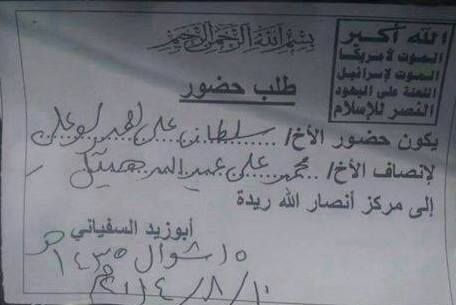 بسم الله الرحمن الرحيم
الله أكبر
الموت لأمريكا
الموت لإسرائيل
اللعنة على اليهود
النصر للإسلام
طلب حضور
يكون حضور الأخ/ سلطان علي
لإنصاف الأخ/ محمد علي عبد
إلى مركز أنصار الله ريدة
أبوزيد السفياني
١٥ شوال ١٤٣٥ هـ
١٠/٨/٢٠١٤م